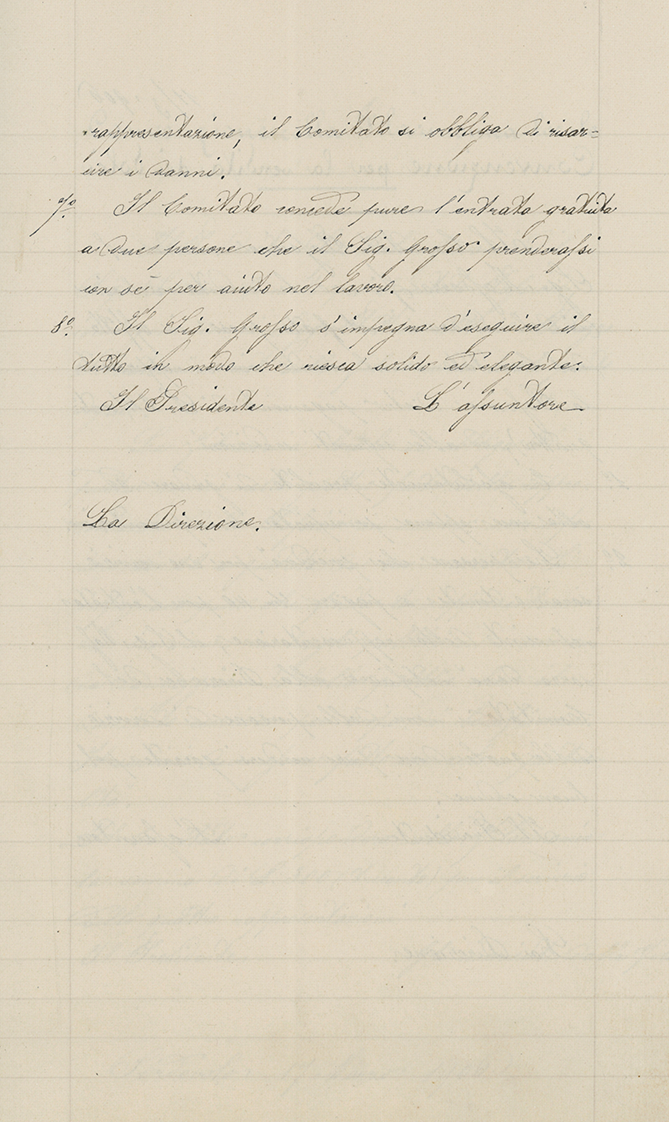 rappresentazione, il Comitato si obbliga di risar=
cire i danni.
7.º Il Comitato concede pure l'entrata gratuita
a due persone che il Sig. Grosso prenderassi
con sè per aiuto nel lavoro.
8.º Il Sig. Grosso s'impegna d'eseguire il
tutto in modo che riesca solido ed elegante.
Il Presidente L'assuntore
La Direzione.